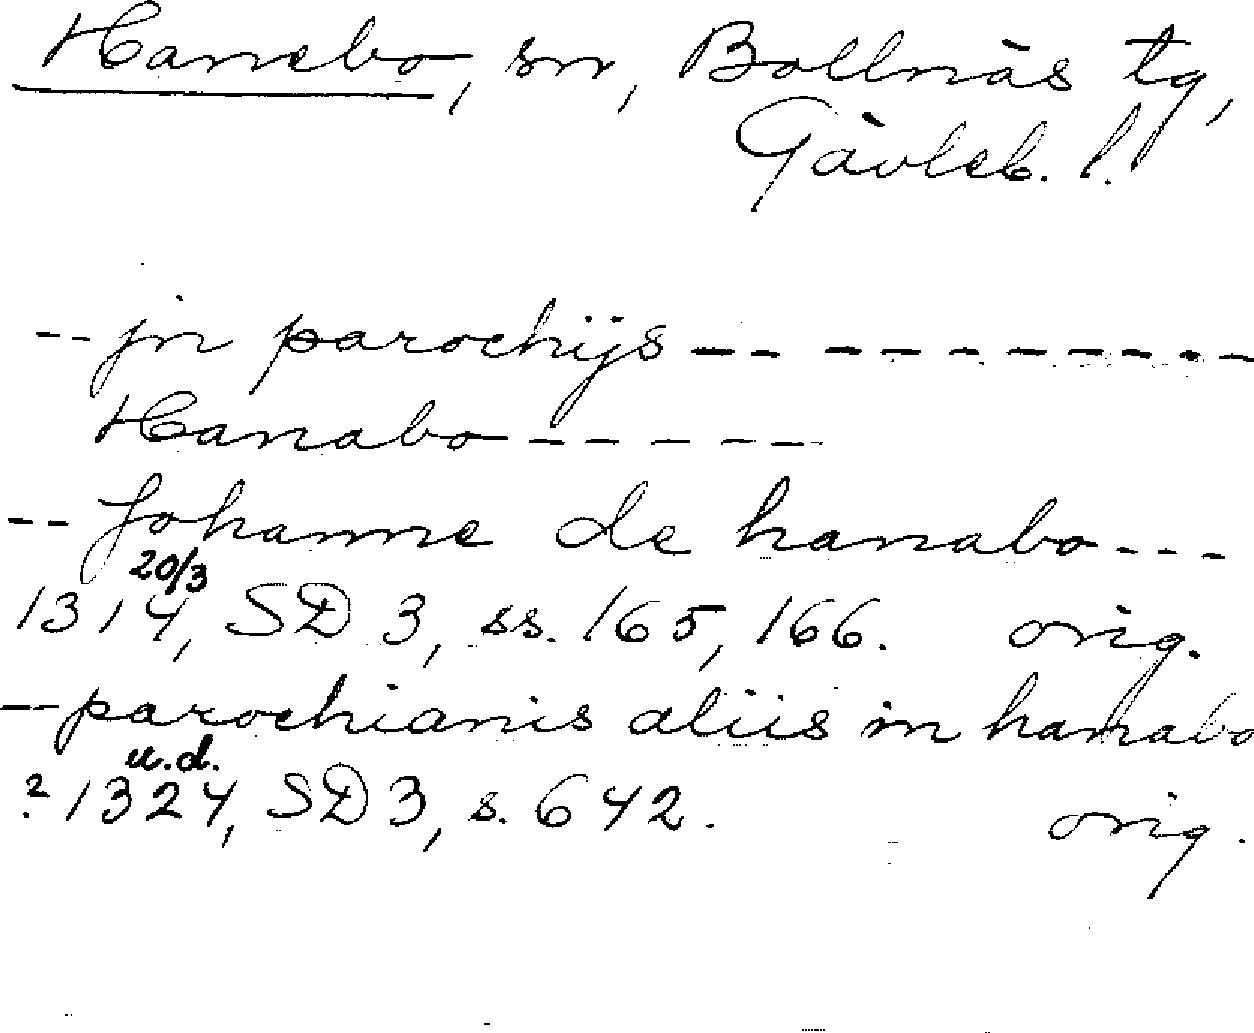 Hanebo, sn, Bollnäs tg,
Gävleb. l.
-- jn parochijs -- -- -- -- -- --
Hanabo -- -- --
-- Johanne de hanabo ---
20/3
1314, SD 3, ss. 165, 166. orig.
-- parochianis aliis in hanabo
u.d.
? 1324, SD 3, s. 642. orig.